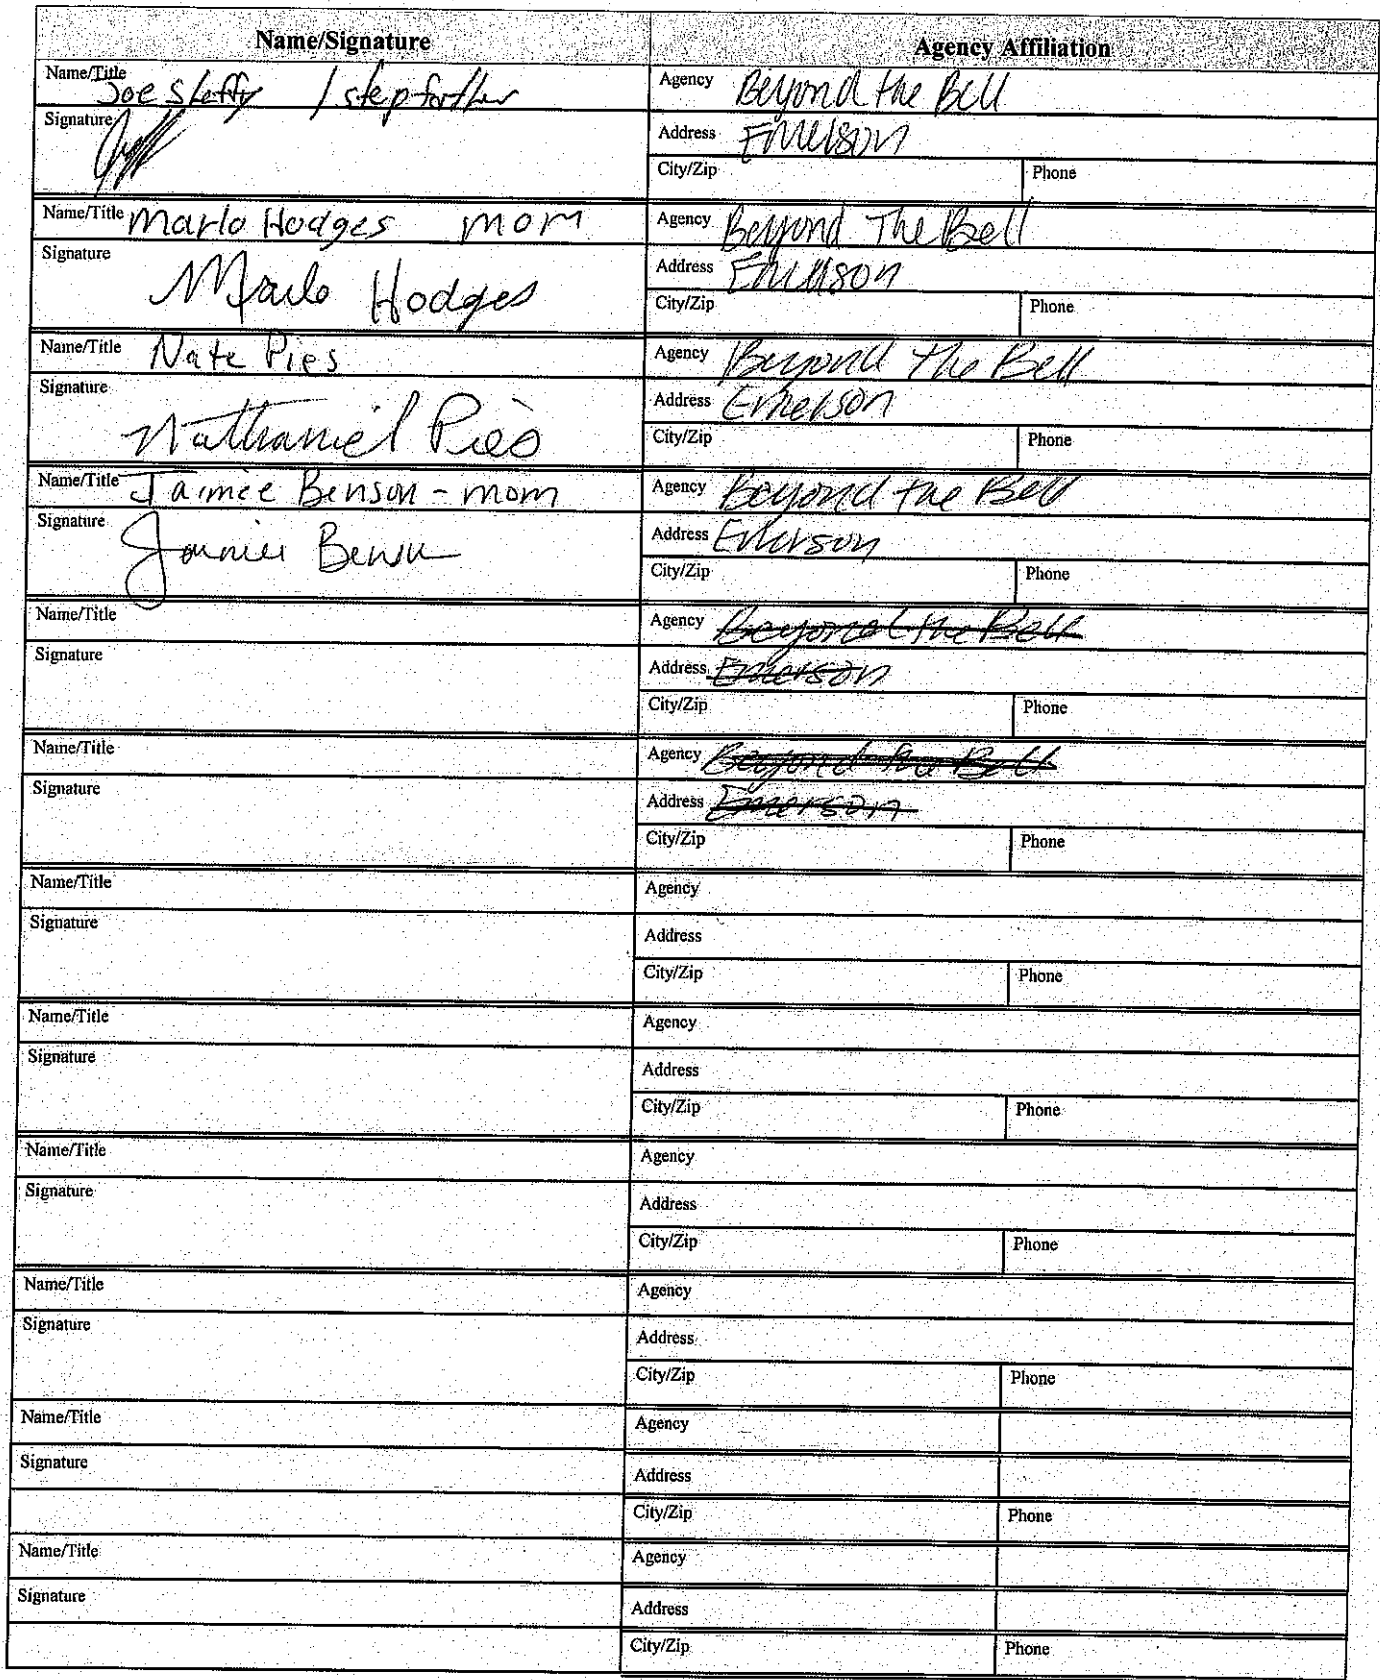 Name/Signature Agency Affiliation
Name/Title Joe / stepfather Agency Beyond the Bell
Signature Address Emerson
City/Zip Phone
Name/Title Marlo Hodges mom Agency Beyond The Bell
Signature Marlo Hodges Address Emerson
City/Zip Phone
Name/Title Nate Pies Agency Beyond The Bell
Signature Nathaniel Pies Address Emerson
City/Zip Phone
Name/Title Jaimee Benson - mom Agency Beyond the Bell
Signature Jaimee Benson Address Emerson
City/Zip Phone
Name/Title Agency Beyond the Bell
Signature Address Emerson
City/Zip Phone
Name/Title Agency Beyond the Bell
Signature Address Emerson
City/Zip Phone
Name/Title Agency
Signature Address
City/Zip Phone
Name/Title Agency
Signature Address
City/Zip Phone
Name/Title Agency
Signature Address
City/Zip Phone
Name/Title Agency
Signature Address
City/Zip Phone
Name/Title Agency
Signature Address
City/Zip Phone
Name/Title Agency
Signature Address
City/Zip Phone